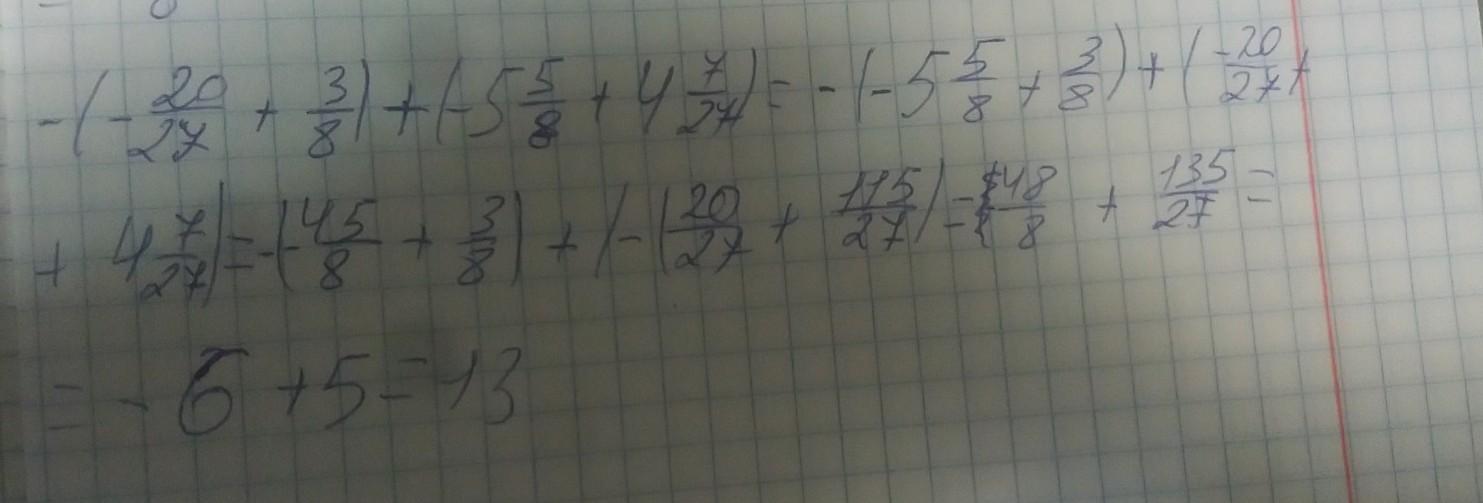 -(-20/27 + 3/8) + (-5 5/8 + 4 7/27) = -(-5 5/8 + 3/8) + (-20/27 +
+ 4 7/27) = -(-45/8 + 3/8) + (-(20/27 + 115/27) = 48/8 + 135/27 =
= - 6 + 5 = 13